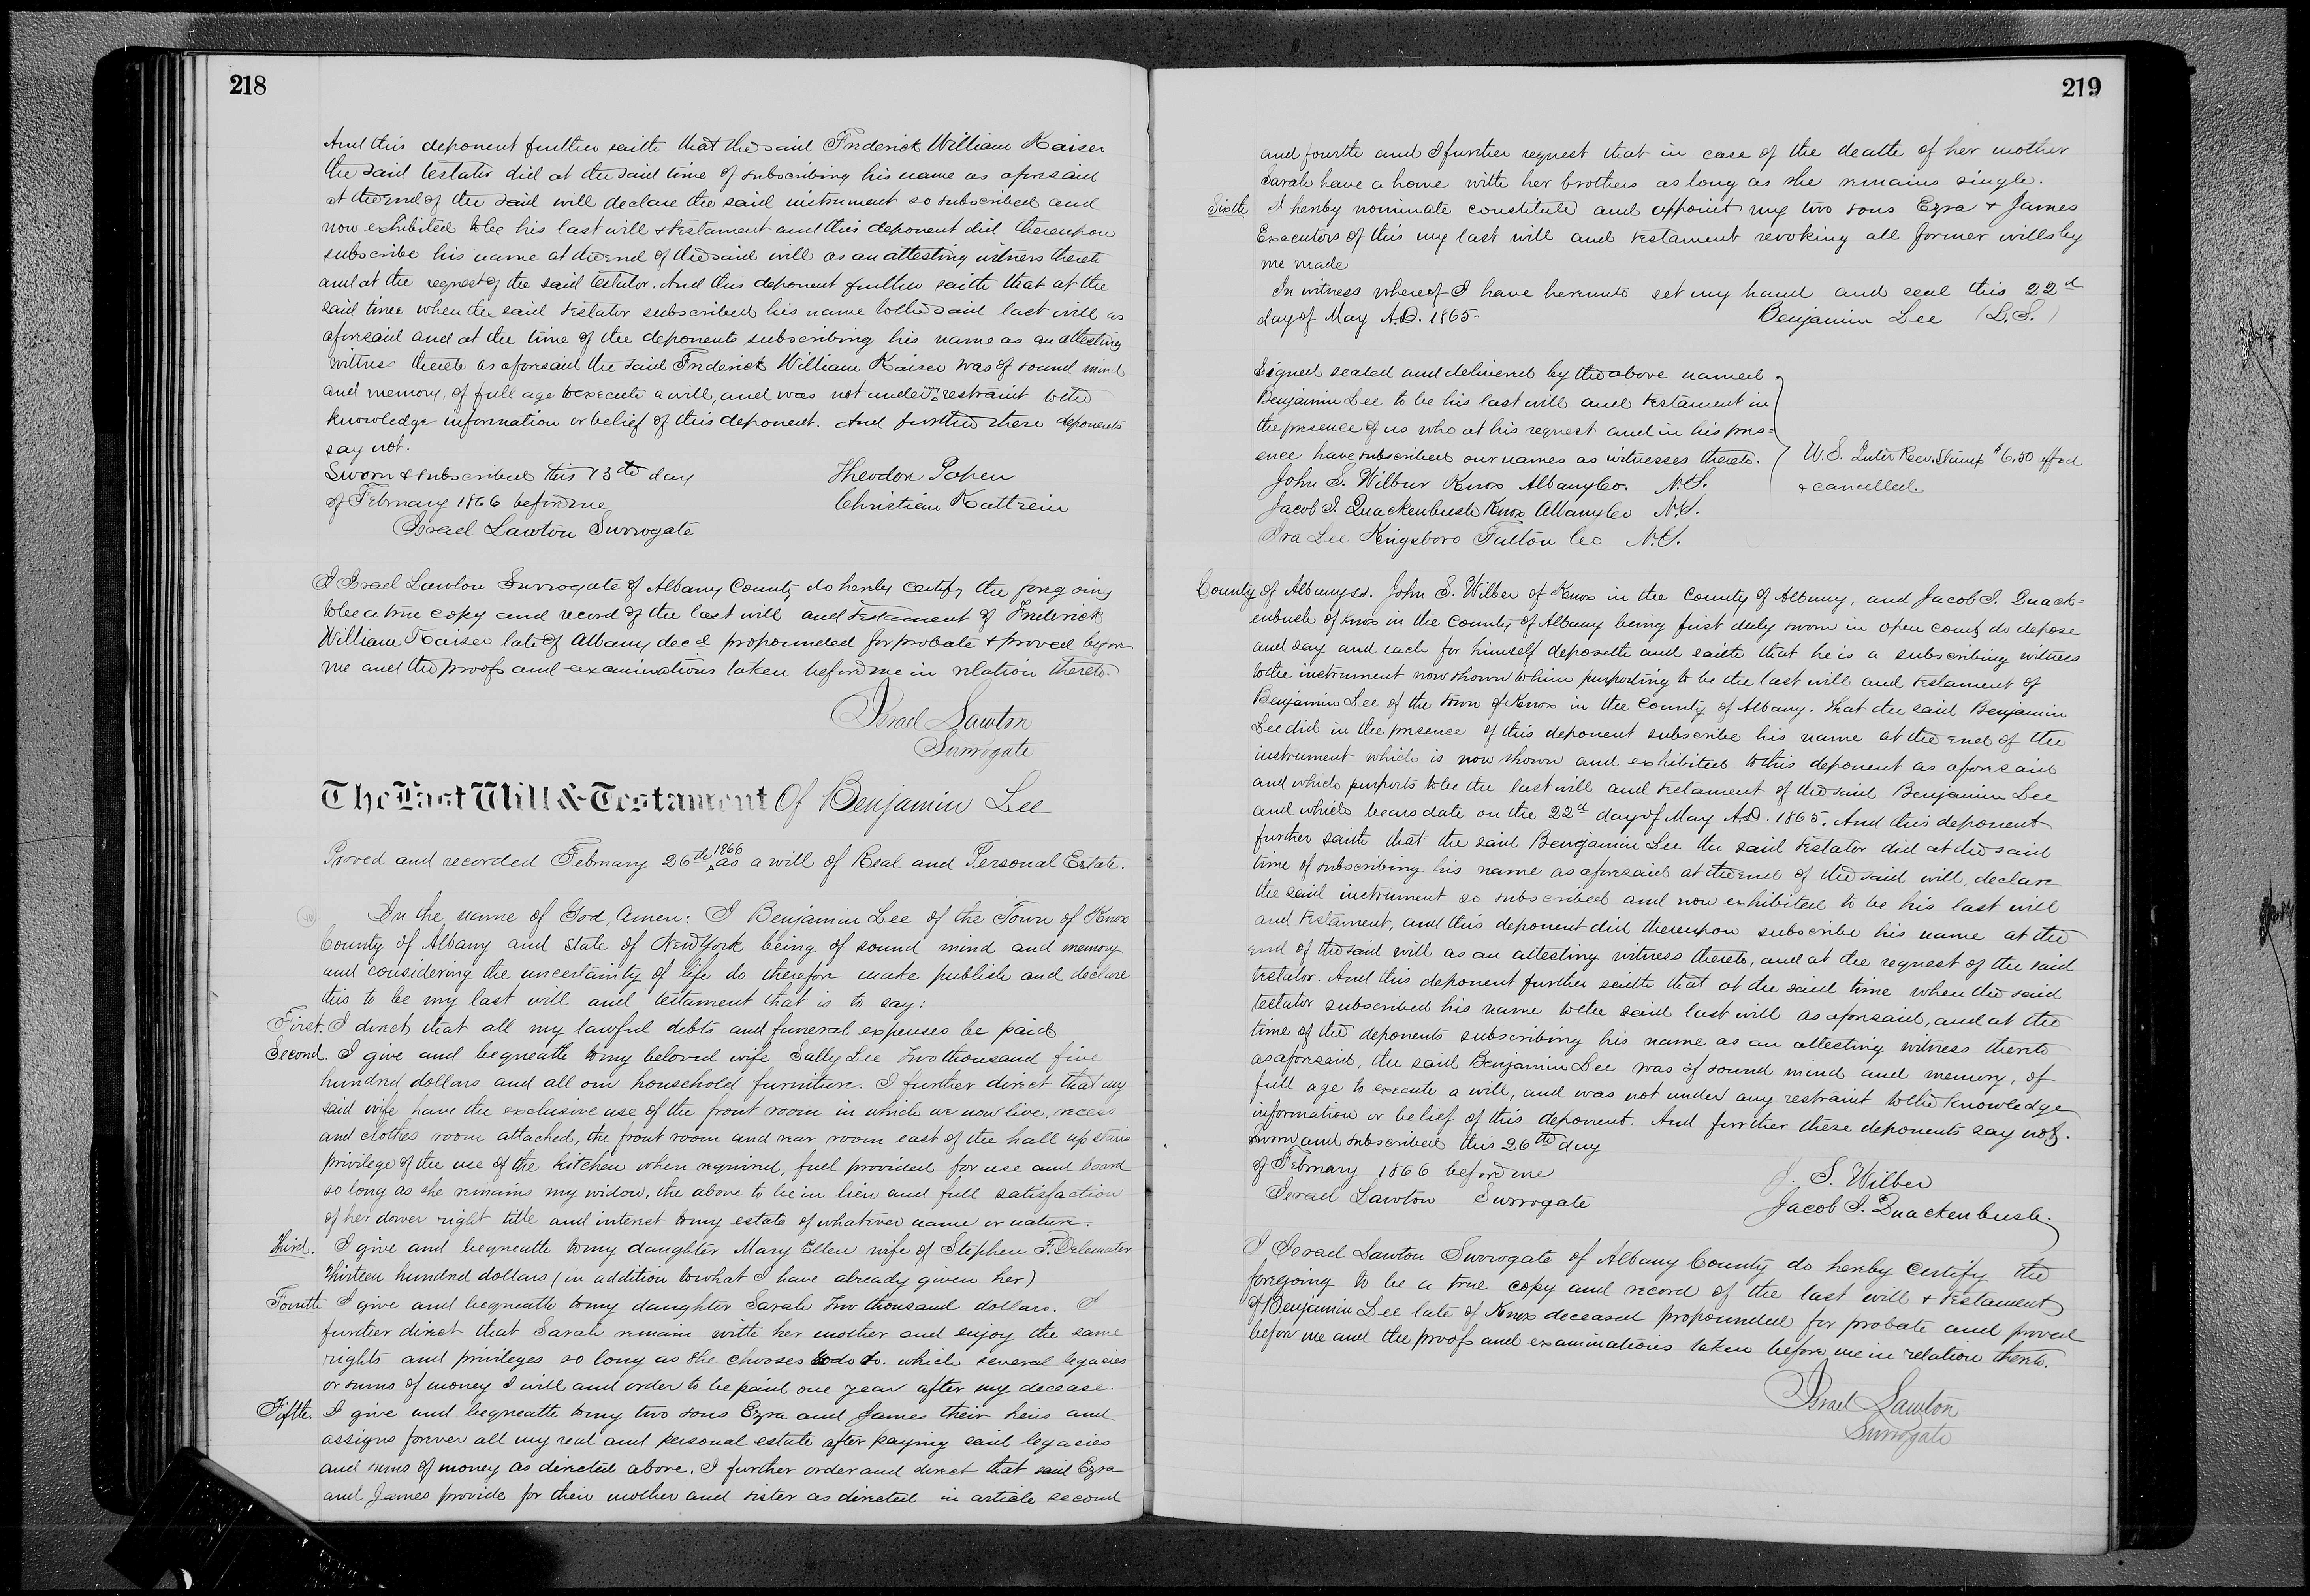 218
And this deponent further saith that the said Frederick William Kaiser
the said testator did at the said time of subscribing his name as aforesaid
at the end of the said will declare the said instrument so subscribed and
now exhibited to be his last will & testament and this deponent did thereupon
subscribe his name at the end of the said will as an attesting witness thereto
and at the request of the said testator. And this deponent further saith that at the
said time when the said testator subscribed his name to the said last will as
aforesaid and at the time of the deponents subscribing his name as an attesting
witness thereto as aforesaid the said Frederick William Kaiser was of sound mind
and memory, of full age to execute a will, and was not under any restraint to the
knowledge information or belief of this deponent. And further these deponents
say not.
Sworn & subscribed this 13th day
of February 1866 before me
Israel Lawton Surrogate
Theodor Papen
Christian Kattrein
I Israel Lawton Surrogate of Albany County do hereby certify the foregoing
to be a true copy and record of the last will and testament of Frederick
William Kaiser late of Albany decd propounded for probate & proved before
me and the proofs and examinations taken before me in relation thereto.
Israel Lawton
Surrogate
The Last Will & Testament Of Benjamin Lee
Proved and recorded February 26th 1866 as a will of Real and Personal Estate.
In the name of God, Amen: I Benjamin Lee of the Town of Knox
County of Albany and State of New York being of sound mind and memory
and considering the uncertainity of life do therefore make publish and declare
this to be my last will and testament that is to say:
First. I direct that all my lawful debts and funeral expenses be paid
Second. I give and bequeath to my beloved wife Sally Lee two thousand five
hundred dollars and all our household furniture. I further direct that my
said wife have the exclusive use of the front room in which we now live, recess
and clothes room attached, the front room and rear room east of the hall up stairs
privilege of the use of the kitchen when required, fuel provided for use and board
so long as she remains my widow, the above to be in lieu and full satisfaction
of her dower right title and interest to my estate of whatever name or nature.
Third. I give and bequeath to my daughter Mary Ellen wife of Stephen F. Delemater
thirteen hundred dollars (in addition to what I have already given her)
Fourth I give and bequeath to my daughter Sarah two thousand dollars. I
further direct that Sarah remain with her mother and enjoy the same
rights and privileges so long as she chooses to do so. which several legacies
or sums of money I will and order to be paid one year after my decease.
Fifth. I give and bequeath to my two sons Ezra and James their heirs and
assigns forever all my real and personal estate after paying said legacies
and sums of money as directed above. I further order and direct that said Ezra
and James provide for their mother and sister as directed in article second
219
and fourth and I further request that in case of the death of her mother
Sarah have a home with her brothers as long as she remains single.
Sixth I hereby nominate constitute and appoint my two sons Ezra & James
Executors of this my last will and testament revoking all former wills by
me made
In witness whereof I have hereunto set my hand and seal this 22d
day of May A.D. 1865. Benjamin Lee (L.S.)
Signed sealed and delivered by the above named
Benjamin Lee to be his last will and testament in
the presence of us who at his request and in his pres=
ence have subscribed our names as witnesses thereto.
John S. Wilbur Knox Albany Co. N.Y.
Jacob I. Quackenbush Knox Albany Co N.Y.
Ira Lee Kingsboro Fulton Co N.Y.
U.S. Inter Rev. Stamp $6.50 affxd
& cancelled.
County of Albany ss. John S. Wilber of Knox in the County of Albany, and Jacob I. Quack=
enbush of Knox in the County of Albany being first duly sworn in open court do depose
and say and each for himself deposeth and saith that he is a subscribing witness
to the instrument now shown to him purporting to be the last will and testament of
Benjamin Lee of the town of Knox in the County of Albany. That the said Benjamin
Lee did in the presence of this deponent subscribe his name at the end of the
instrument which is now shown and exhibited to this deponent as aforesaid
and which purports to be the last will and testament of the said Benjamin Lee
and which bears date on the 22d day of May A.D. 1865. And this deponent
further saith that the said Benjamin Lee the said testator did at the said
time of subscribing his name as aforesaid at the end of the said will, declare
the said instrument so subscribed and now exhibited to be his last will
and testament, and this deponent did thereupon subscribe his name at the
end of the said will as an attesting witness thereto, and at the request of the said
testator. And this deponent further saith that at the said time when the said
testator subscribed his name to the said last will as aforesaid, and at the
time of the deponents subscribing his name as an attesting witness thereto
as aforesaid, the said Benjamin Lee was of sound mind and memory, of
full age to execute a will, and was not under any restraint to the knowledge
information or belief of this deponent. And further these deponents say not.
Sworn and subscribed this 26th day
of February 1866 before me
Israel Lawton Surrogate
J. S. Wilber
Jacob I. Quackenbush.
I Israel Lawton Surrogate of Albany County do hereby certify the
foregoing to be a true copy and record of the last will & testament
of Benjamin Lee late of Knox deceased propounded for probate and proved
before me and the proofs and examinations taken before me in relation thereto.
Israel Lawton
Surrogate